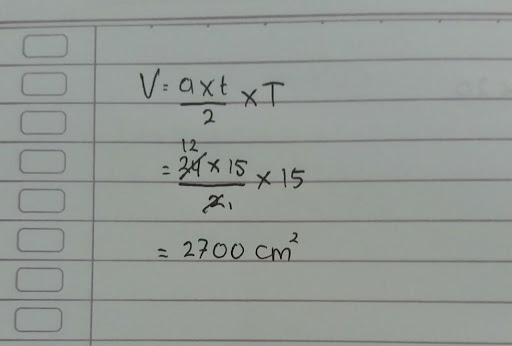 V = a x t / 2 x T
12
= 24 x 15 / 2 1 x 15
= 2700 cm²